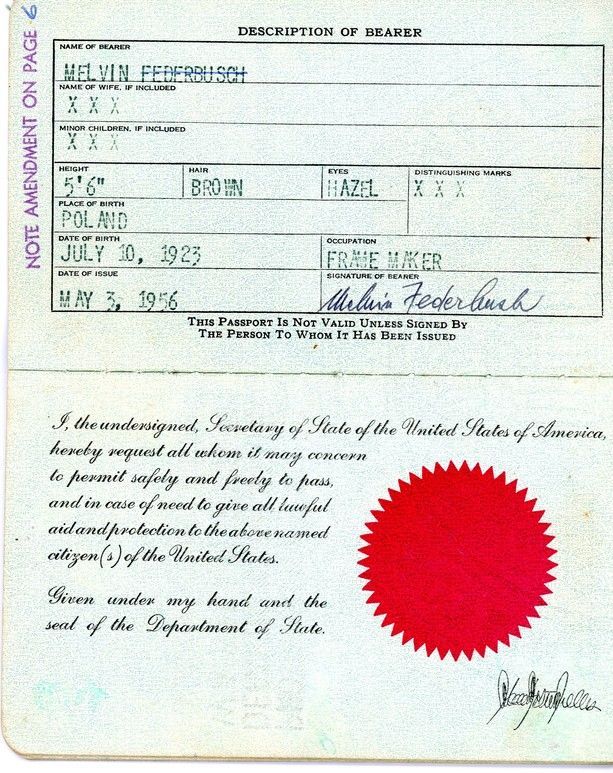 NOTE AMENDMENT ON PAGE 6
DESCRIPTION OF BEARER
NAME OF BEARER
MELVIN FEDERBUSCH
NAME OF WIFE, IF INCLUDED
X X X
MINOR CHILDREN, IF INCLUDED
X X X
HEIGHT HAIR EYES DISTINGUISHING MARKS
5'6" BROWN HAZEL X X X
PLACE OF BIRTH
POLAND
DATE OF BIRTH OCCUPATION
JULY 10, 1923 FRAME MAKER
DATE OF ISSUE SIGNATURE OF BEARER
MAY 3, 1956 Melvin Federbush
THIS PASSPORT IS NOT VALID UNLESS SIGNED BY
THE PERSON TO WHOM IT HAS BEEN ISSUED
I, the undersigned, Secretary of State of the United States of America,
hereby request all whom it may concern
to permit safely and freely to pass,
and in case of need to give all lawful
aid and protection to the above named
citizen(s) of the United States.
Given under my hand and the
seal of the Department of State.